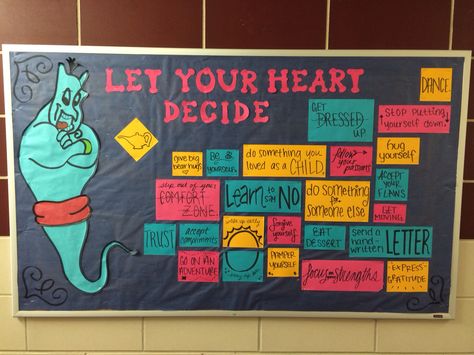 LET YOUR HEART
DECIDE
DANCE
GET
DRESSED
UP
STOP putting
yourself down
Hug
yourself
give big
bear hugs
Be
yourself
do something you
loved as a CHILD
follow
your passions
ACCEPT
YOUR
FLAWS
Step out of your
COMFORT
ZONE
Learn to
say
NO
do something
for
someone else
GET
MOVING
TRUST
accept
compliments
wake up early
forgive
yourself
EAT
DESSERT
send a
hand-
written
LETTER
GO ON AN
ADVENTURE
PAMPER
YOURSELF
focus on strengths
EXPRESS
GRATITUDE